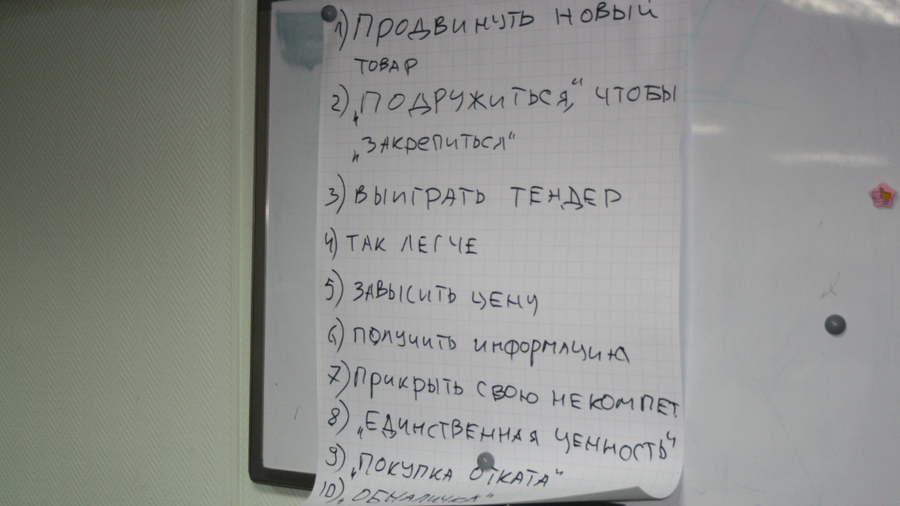 1) ПРОДВИНУТЬ НОВЫЙ
ТОВАР
2) „ПОДРУЖИТЬСЯ,“ ЧТОБЫ
„ЗАКРЕПИТЬСЯ“
3) ВЫИГРАТЬ ТЕНДЕР
4) ТАК ЛЕГЧЕ
5) ЗАВЫСИТЬ ЦЕНУ
6) ПОЛУЧИТЬ ИНФОРМАЦИЮ
7) ПРИКРЫТЬ СВОЮ НЕКОМПЕТ.
8) „ЕДИНСТВЕННАЯ ЦЕННОСТЬ“
9) „ПОКУПКА ОТКАТА“
10) „ОБНАЛИЧКА“